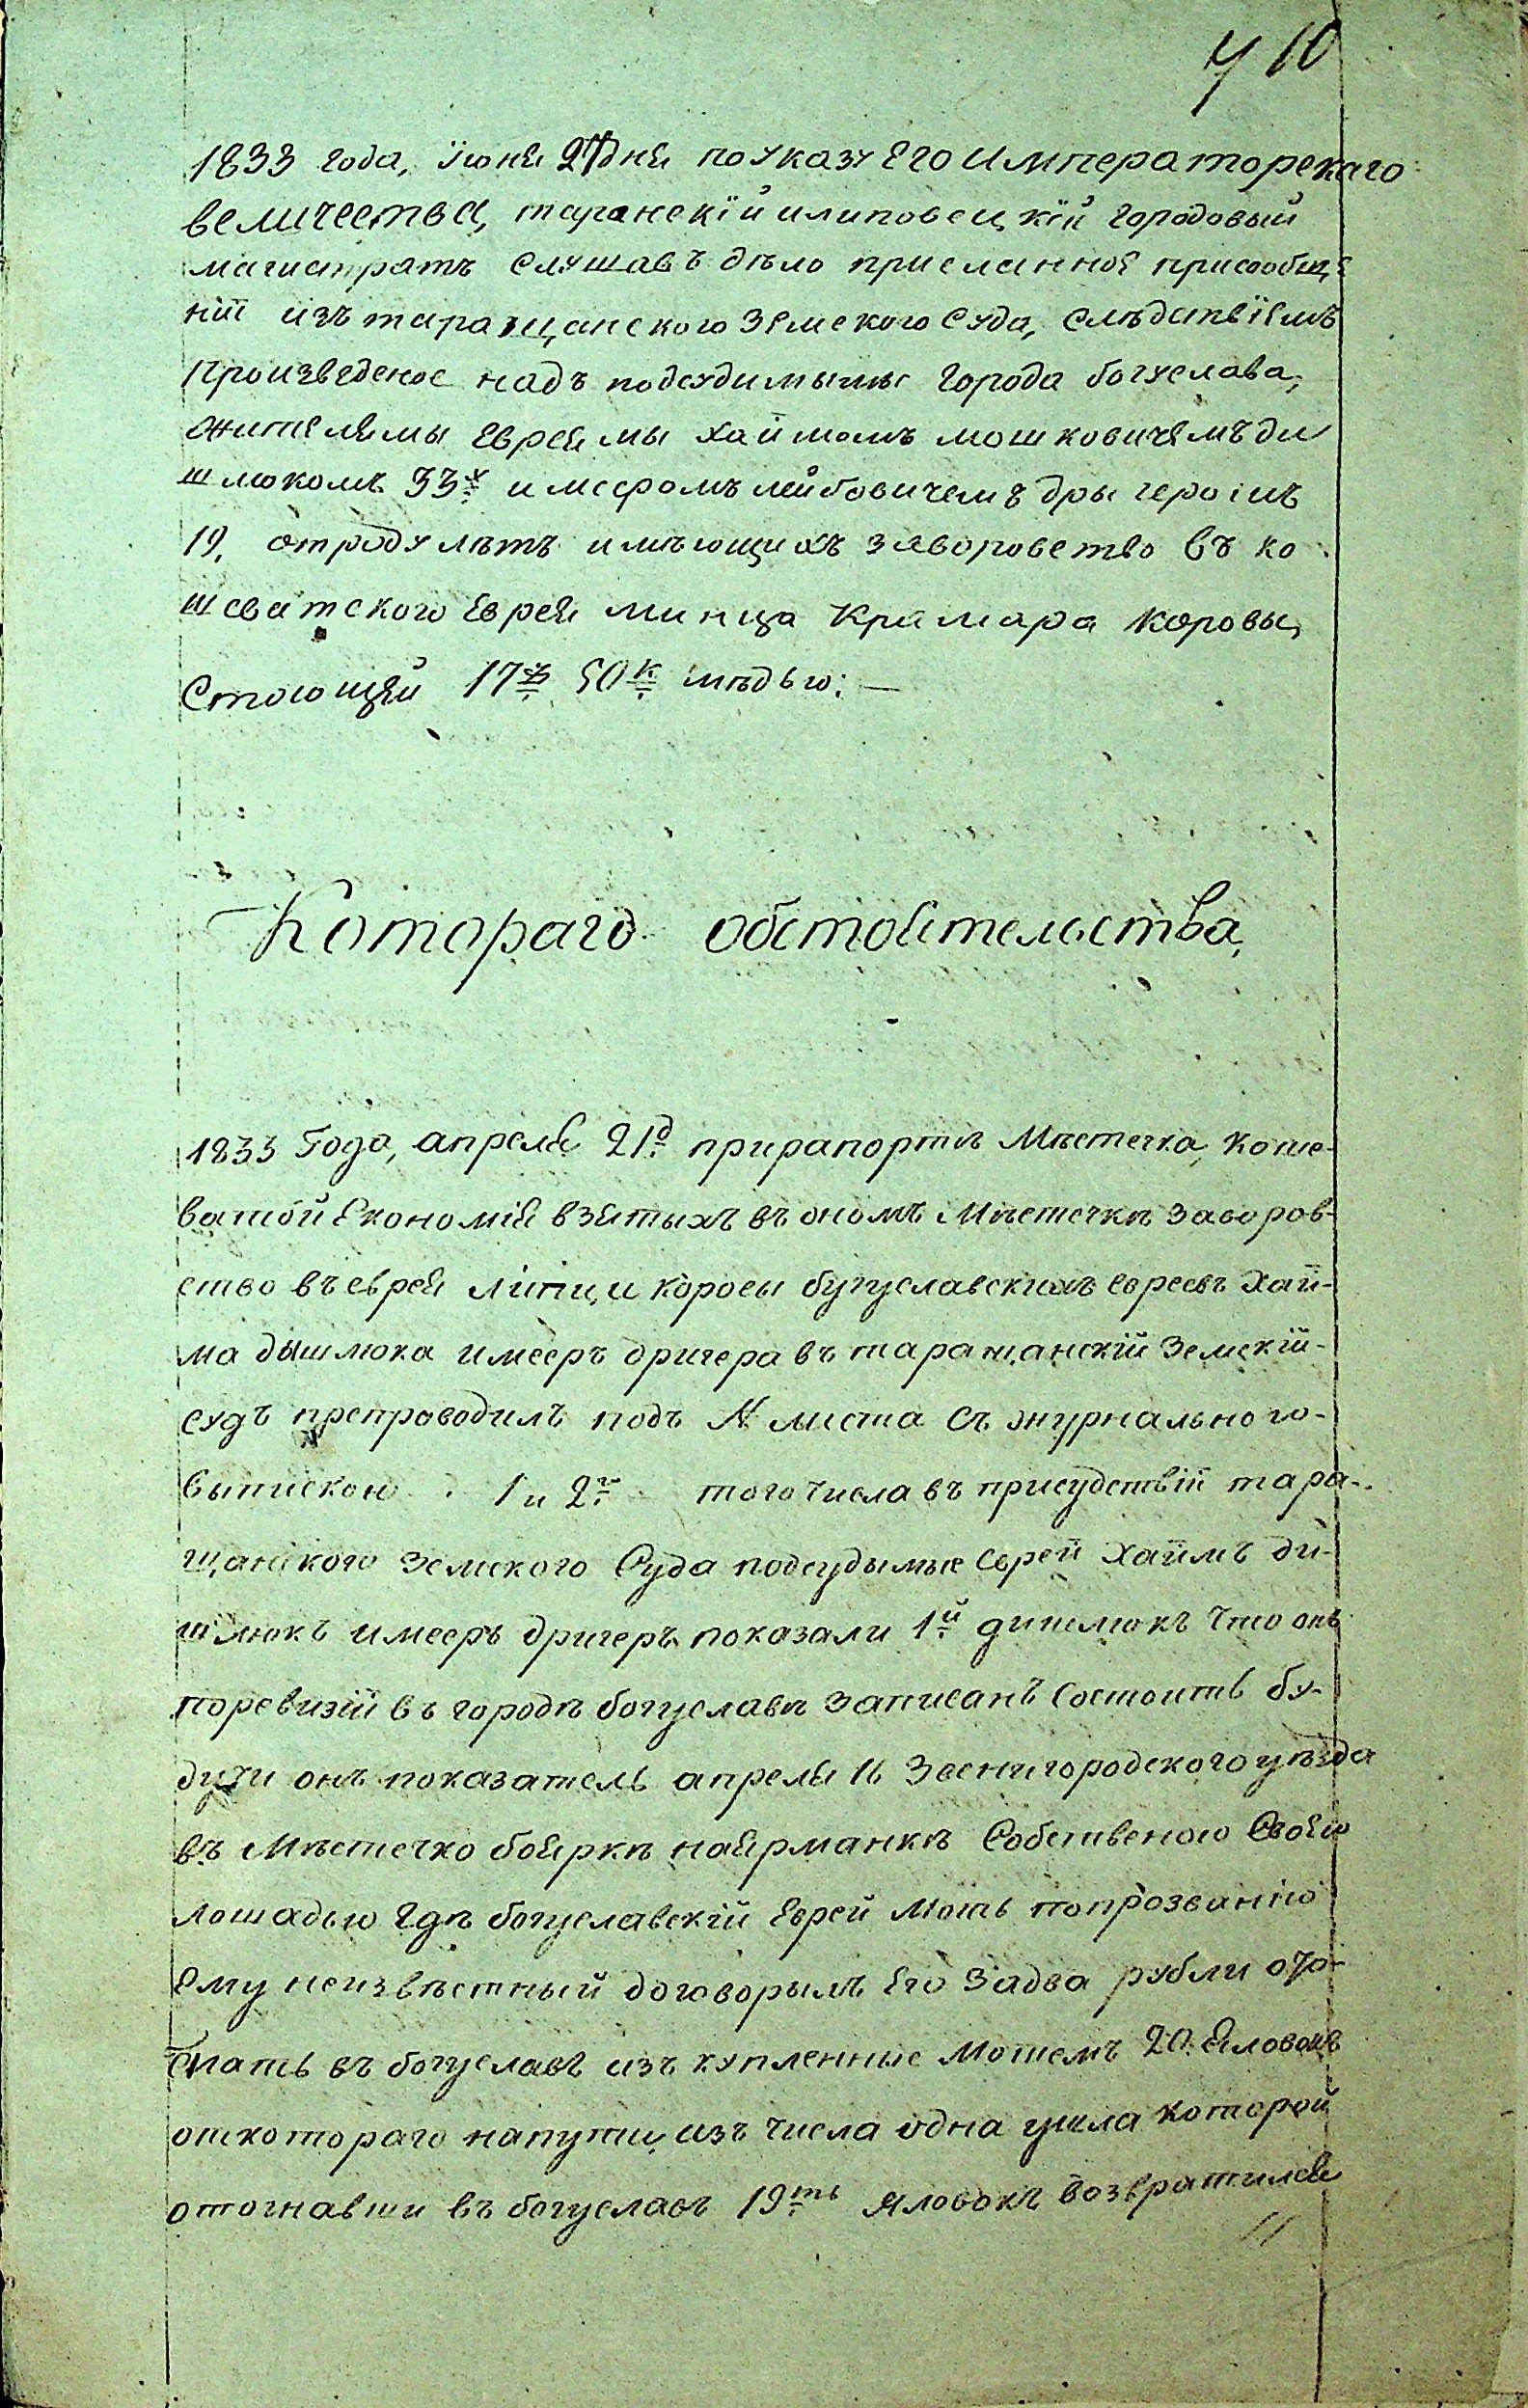 10
1833 года, Їюня 27 дня поуказу Его Императорскаго
величества, таранскїй илиповецкїй городовый
магистратъ слушавъ дѣло присланноя присообще
нїї изъ таращанского земского Суда, слѣдствїемъ
произведеное надъ подсудимыми города богуслава,
жителямы Евреямы хаймомъ мошковичемъ ди
шлюкомъ 33х и меєромъ лейбовичемъ дрыгеромъ
19, отроду лѣтъ имѣющихъ заворовство въ ко
шеватского Еврея минца крамара коровы,
стоющей 17 р 50 к мѣдью: —
Котораго обстоятельства,
1833 Года, апреля 21д прирапортѣ Мѣстечка, коше-
ватой Економія взятыхъ въ ономъ Мѣстечкѣ заворов-
ство въ еврея липи, и коровы бугуславскихъ евреевъ хай-
ма дышлюка имееръ дригера въ таращанскій Земскій-
судъ препроводилъ подъ № листа съ журнального-
выпискою 1 и 2го того числа въ присудствїй тара-
щанского земского Суда подсудымые еврей хаймъ ди-
шлюкъ имееръ дригеръ показали 1й дишлюкъ что онъ
поревизїй въ городѣ богуславѣ записанъ состоитъ бу-
дучи онъ показатель апреля 16 Звенигородского уѣзда
въ Мѣстечко бояркѣ наярманкѣ Собственою своею
лошадью гдѣ богуславскій Еврей Мошь попрозванїю
ему неизвѣстный договорылъ Его задва рубли ото-
гнать въ богуславъ изъ купленные Мошемъ 20. яловокъ
откотораго напути, изъ числа одна ушла которой
отогнавши въ богуславъ 19ть яловокъ возвратился